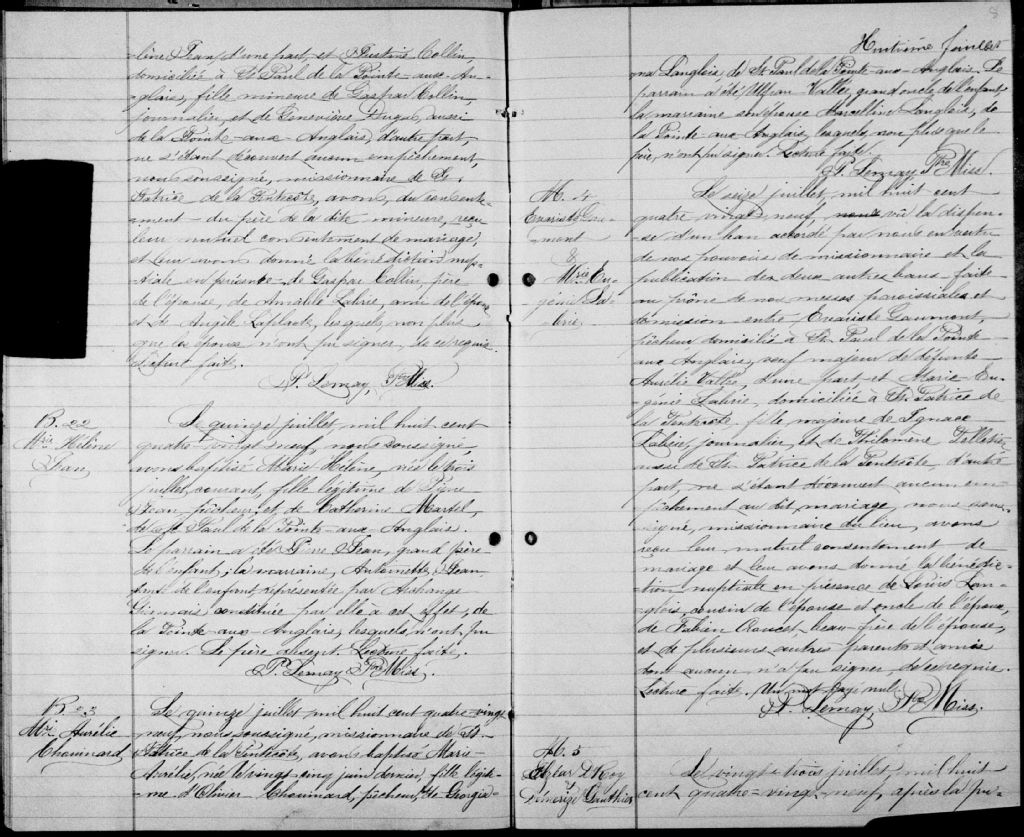 -line Jean d'une part, et Justine Collin,
domiciliée à St Paul de la Pointe-aux-An-
glais, fille mineure de Gaspar Collin,
journalier, et de Geneviève Dugas, aussi
de la Pointe-aux-Anglais, d'autre part,
ne s'étant découvert aucun empêchement,
nous soussigné, missionnaire de St
Patrice de la Pentecôte, avons, du consente-
-ment du père de la dite mineure, reçu
leur mutuel consentement de mariage,
et leur avons donné la bénédiction nup-
-tiale en présence de Gaspar Collin, père
de l'épouse, de Amable Labrie, ami de l'époux
et de Angèle Laplante, lesquels non plus
que les époux n'ont pu signer, de ce requis.
Lecture faite.
P. Lemay, Ptre Miss.
B. 22
Mie Hélène
Jean
Le quinze juillet mil huit cent
quatre vingt neuf, nous soussigné
avons baptisé Marie Hélène, née le trois
juillet courant, fille légitime de Pierre
Jean pêcheur, et de Catherine Martel,
de St Paul de la Pointe-aux-Anglais.
Le parrain a été Pierre Jean, grand père
de l'enfant; la marraine, Antoinette Jean
tante de l'enfant représentée par
constituée par elle à cet effet, de
la Pointe-aux-Anglais, lesquels n'ont pu
signer. Le père absent. Lecture faite.
P. Lemay Ptre Miss.
B. 23
Mie Aurélie
Chouinard
Le quinze juillet mil huit cent quatre-vingt
neuf, nous soussigné, missionnaire de St
Patrice de la Pentecôte, avons baptisé Marie
Aurélie, née le vingt-cinq juin dernier, fille légiti-
-me d'Olivier Chouinard, pêcheur, & de Georgia-
8
Huitième feuillet
na Langlais de St Paul de la Pointe-aux-Anglais. Le
parrain a été Ulfran Vallée, grand oncle de l'enfant
la marraine son épouse Marcelline Langlais, de
la Pointe-aux-Anglais, lesquels, non plus que le
père, n'ont pu signer. Lecture faite.
P. Lemay Ptre Miss.
M. 4
Evariste Cau-
-mont
&
Mrie Eu-
génie La-
brie.
Le seize juillet, mil huit cent
quatre vingt neuf, vû la dispen-
-se d'un ban accordé par nous en vertu
de nos pouvoirs de missionnaire et la
publication des deux autres bans faite
au prône de nos messes paroissiales et
de mission entre Evariste Caumont,
pêcheur domicilié à St. Paul de la Pointe
aux Anglais, veuf majeur de défunte
Aurélie Vallée, d'une part, et Marie Eu-
génie Labrie, domiciliée à St. Patrice de
la Pentecôte, fille majeure de Ignace
Labrie, journalier, et de Philomène Pelletier,
aussi de St. Patrice de la Pentecôte, d'autre
part, ne s'étant découvert aucun em-
pêchement au dit mariage, nous sous-
signé, missionnaire du lieu, avons
reçu leur mutuel consentement de
mariage et leur avons donné la bénédic-
-tion nuptiale en présence de Louis Lan-
glois, cousin de l'épouse et oncle de l'époux,
de Fabien Doucet beau-frère de l'épouse,
et de plusieurs autres parents & amis
dont aucun n'a pu signer, de ce requis.
Lecture faite. Un mot rayé nul.
P. Lemay, Ptre Miss.
M. 5
Elzéar Roy
Démerise Gauthier
Le vingt-trois juillet, mil huit
cent quatre-vingt-neuf, après la pu-